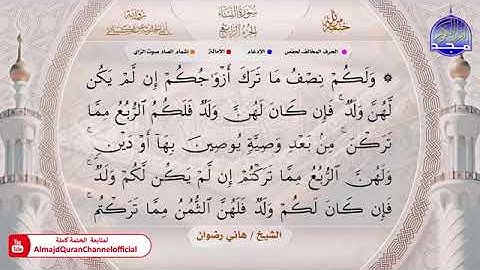 سورة النساء
الجزء الرابع
الحرف المخالف لحفص
الادغام
الامالة
إشمام الصاد صوت الزاي
۞ وَلَكُمْ نِصْفُ مَا تَرَكَ أَزْوَٰجُكُمْ إِن لَّمْ يَكُن
لَّهُنَّ وَلَدٌ ۚ فَإِن كَانَ لَهُنَّ وَلَدٌ فَلَكُمُ ٱلرُّبُعُ مِمَّا
تَرَكْنَ ۚ مِنۢ بَعْدِ وَصِيَّةٍ يُوصِينَ بِهَآ أَوْ دَيْنٍ ۚ
وَلَهُنَّ ٱلرُّبُعُ مِمَّا تَرَكْتُمْ إِن لَّمْ يَكُن لَّكُمْ وَلَدٌ ۚ
فَإِن كَانَ لَكُمْ وَلَدٌ فَلَهُنَّ ٱلثُّمُنُ مِمَّا تَرَكْتُم ۚ
الشيخ / هاني رضوان
لمتابعة الختمة كاملة
AlmajdQuranChannelofficial